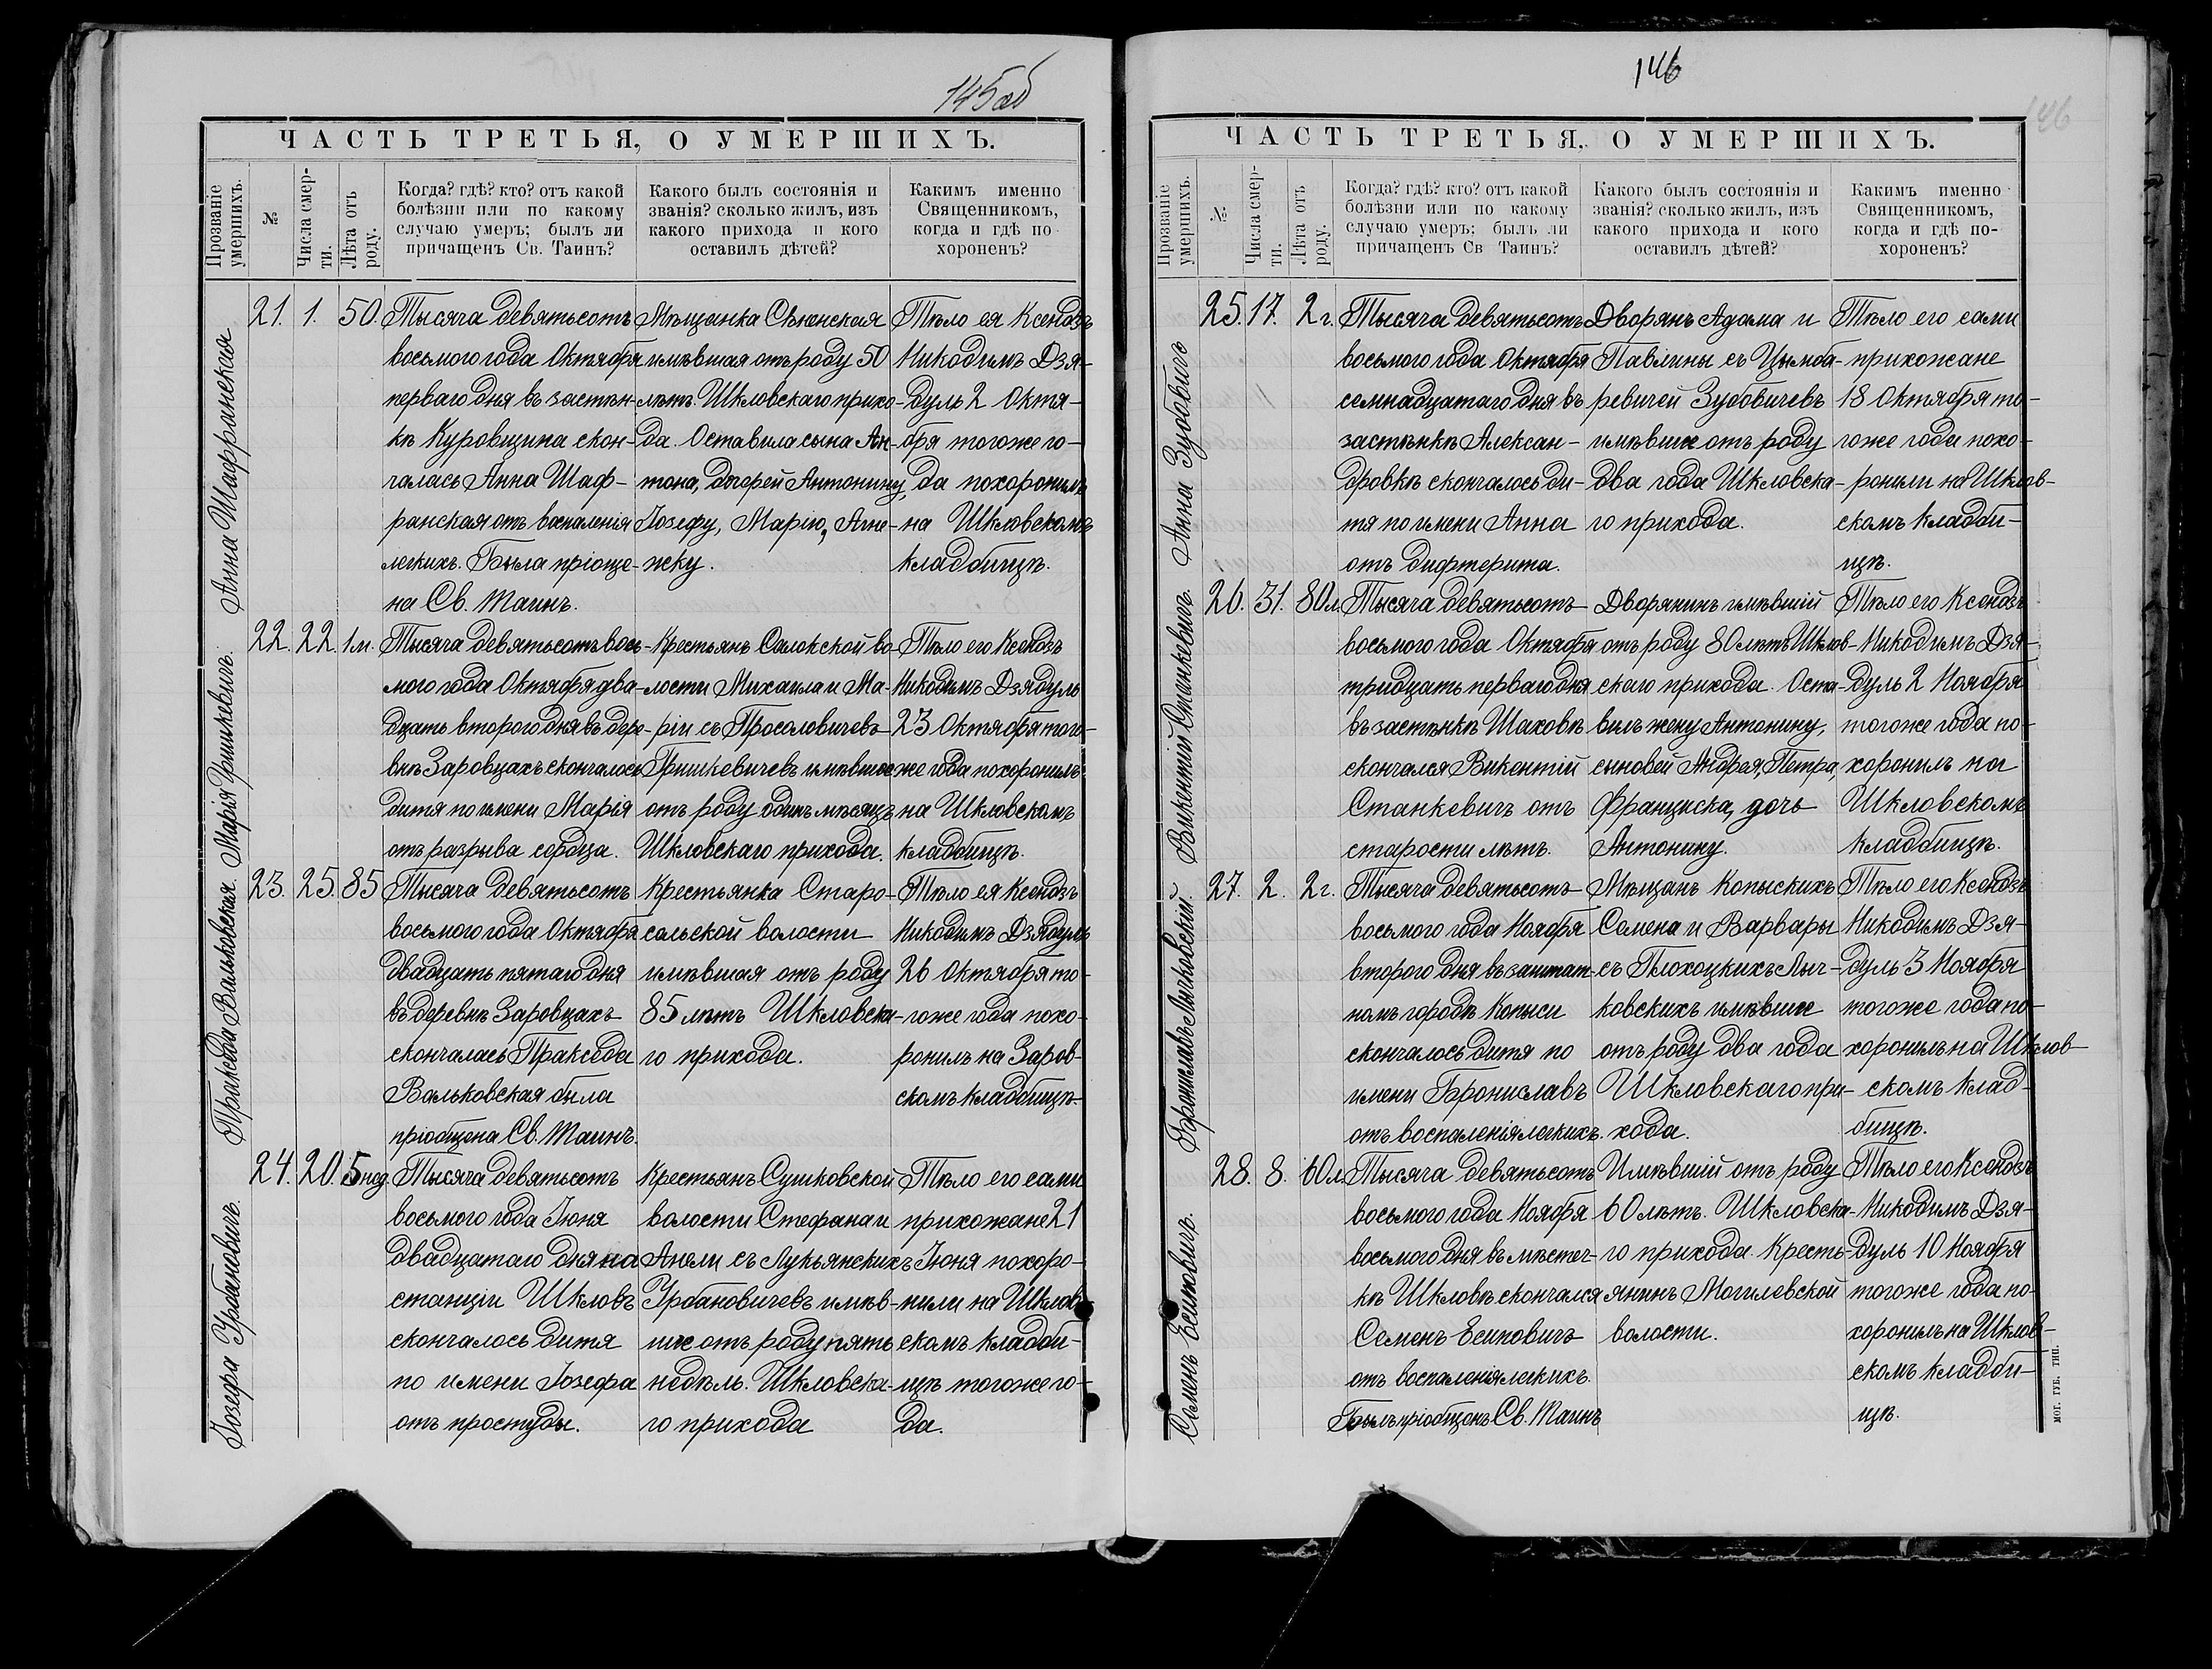 145об
ЧАСТЬ ТРЕТЬЯ, О УМЕРШИХЪ.
Прозваніе умершихъ.
№
Числа смер-
ти.
Лѣта отъ
роду.
Когда? гдѣ? кто? отъ какой
болѣзни или по какому
случаю умеръ; былъ ли
причащенъ Св. Таинъ?
Какого былъ состоянія и
званія? сколько жилъ, изъ
какого прихода и кого
оставилъ дѣтей?
Какимъ именно
Священникомъ,
когда и гдѣ по-
хороненъ?
Анна Шафранская
21. 1. 50.
Тысяча девятьсотъ
восьмого года Октября
перваго дня въ застѣн-
кѣ Куровщина скон-
чалась Анна Шаф-
ранская отъ воспаленія
легкихъ. Была пріоще-
на Св. Таинъ.
Мѣщанка Сѣненская
имѣвшая отъ роду 50
лѣтъ. Шкловскаго прихо-
да. Оставила сына Ан-
тона, дочерей Антонину,
Іозефу, Марію, Агне-
жку.
Тѣло ея Ксендзъ
Никодимъ Дзя-
дуль 2 Октя-
бря тогоже го-
да похоронилъ
на Шкловскомъ
кладбищѣ.
Марія Гришкевичъ.
22. 22. 1 м.
Тысяча девятьсотъ вось-
мого года Октября два-
дцать второго дня въ дере-
внѣ Заровцахъ скончалось
дитя по имени Марія
отъ разрыва сердца.
Крестьянъ Солокской во-
лости Михаила и Ма-
ріи съ Просоловичевъ
Гришкевичевъ имѣвшее
отъ роду одинъ мѣсяцъ
Шкловскаго прихода.
Тѣло его Ксендзъ
Никодимъ Дзядуль
23 Октября того-
же года похоронилъ
на Шкловскомъ
кладбищѣ.
Праксэда Вальковская.
23. 25. 85
Тысяча девятьсотъ
восьмого года Октября
двадцать пятаго дня
въ деревнѣ Заровцахъ
скончалась Праксэда
Вальковская была
пріобщена Св. Таинъ.
Крестьянка Старо-
сельской волости
имѣвшая отъ роду
85 лѣтъ Шкловска-
го прихода.
Тѣло ея Ксендзъ
Никодимъ Дзядуль
26 Октября то-
гоже года похо-
ронилъ на Заров-
скомъ кладбищѣ.
Іозефа Урбановичъ.
24. 20. 5 нед.
Тысяча девятьсотъ
восьмого года Іюня
двадцатаго дня на
станціи Шкловъ
скончалось дитя
по имени Іозефа
отъ простуды.
Крестьянъ Сушковской
волости Стефана и
Анели съ Лукьянскихъ
Урбановичевъ имѣв-
шее отъ роду пять
недѣль. Шкловска-
го прихода
Тѣло его сами
прихожане 21
Іюня похоро-
нили на Шклов-
скомъ кладби-
щѣ тогоже го-
да.
146
146
ЧАСТЬ ТРЕТЬЯ, О УМЕРШИХЪ.
Прозваніе умершихъ.
№
Числа смер-
ти.
Лѣта отъ
роду.
Когда? гдѣ? кто? отъ какой
болѣзни или по какому
случаю умеръ; былъ ли
причащенъ Св Таинъ?
Какого былъ состоянія и
званія? сколько жилъ, изъ
какого прихода и кого
оставилъ дѣтей?
Какимъ именно
Священникомъ,
когда и гдѣ по-
хороненъ?
Анна Зубовичъ
25. 17. 2 г.
Тысяча девятьсотъ
восьмого года Октября
семнадцатаго дня въ
застѣнкѣ Алексан-
дровкѣ скончалось ди-
тя по имени Анна
отъ дифтерита.
Дворянъ Адама и
Павлины съ Цымба-
ревичей Зубовичевъ
имѣвшее отъ роду
два года Шкловска-
го прихода.
Тѣло его сами
прихожане
18 Октября то-
гоже года похо-
ронили на Шклов-
скомъ кладби-
щѣ.
Викентій Станкевичъ
26. 31. 80 л.
Тысяча девятьсотъ
восьмого года Октября
тридцать перваго дня
въ застѣнкѣ Шаховѣ
скончался Викентій
Станкевичъ отъ
старости лѣтъ.
Дворянинъ имѣвшій
отъ роду 80 лѣтъ Шклов-
скаго прихода. Оста-
вилъ жену Антонину,
сыновей Андрея, Петра,
Франциска, дочь
Антонину.
Тѣло его Ксендзъ
Никодимъ Дзя-
дуль 2 Ноября
тогоже года по-
хоронилъ на
Шкловскомъ
кладбищѣ.
Брониславъ Лычковскій.
27. 2. 2 г.
Тысяча девятьсотъ
восьмого года Ноября
второго дня въ заштат-
номъ городѣ Копыси
скончалось дитя по
имени Брониславъ
отъ воспаленія легкихъ.
Мѣщанъ Копыскихъ
Семена и Варвары
съ Плохоцкихъ Лыч-
ковскихъ имѣвшее
отъ роду два года
Шкловскаго при-
хода.
Тѣло его Ксендзъ
Никодимъ Дзя-
дуль 3 Ноября
тогоже года по-
хоронилъ на Шклов-
скомъ клад-
бищѣ.
Семенъ Есиповичъ.
28. 8. 60 л.
Тысяча девятьсотъ
восьмого года Ноября
восьмого дня въ мѣстеч-
кѣ Шкловѣ скончался
Семенъ Есиповичъ
отъ воспаленія легкихъ.
Былъ пріобщенъ Св. Таинъ
Имѣвшій отъ роду
60 лѣтъ. Шкловска-
го прихода. Кресть-
янинъ Могилевской
волости.
Тѣло его Ксендзъ
Никодимъ Дзя-
дуль 10 Ноября
тогоже года по-
хоронилъ на Шклов-
скомъ кладби-
щѣ.
МОГ. ГУБ. ТИП.